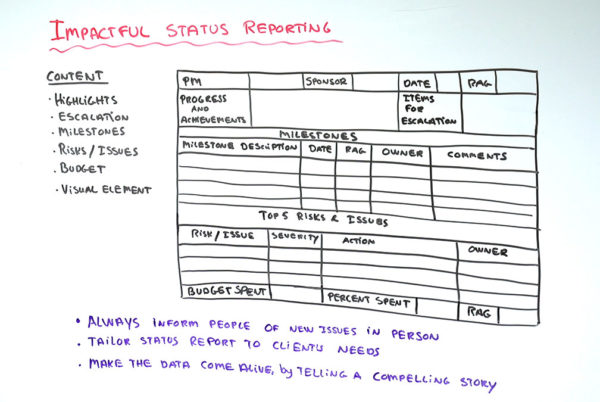 IMPACTFUL STATUS REPORTING
CONTENT
• HIGHLIGHTS
• ESCALATION
• MILESTONES
• RISKS / ISSUES
• BUDGET
• VISUAL ELEMENT
PM SPONSOR DATE RAG
PROGRESS AND ACHIEVEMENTS ITEMS FOR ESCALATION
MILESTONES
MILESTONE DESCRIPTION DATE RAG OWNER COMMENTS
TOP 5 RISKS & ISSUES
RISK / ISSUE SEVERITY ACTION OWNER
BUDGET SPENT PERCENT SPENT RAG
• ALWAYS INFORM PEOPLE OF NEW ISSUES IN PERSON
• TAILOR STATUS REPORT TO CLIENTS NEEDS
• MAKE THE DATA COME ALIVE, by TELLING A COMPELLING STORY